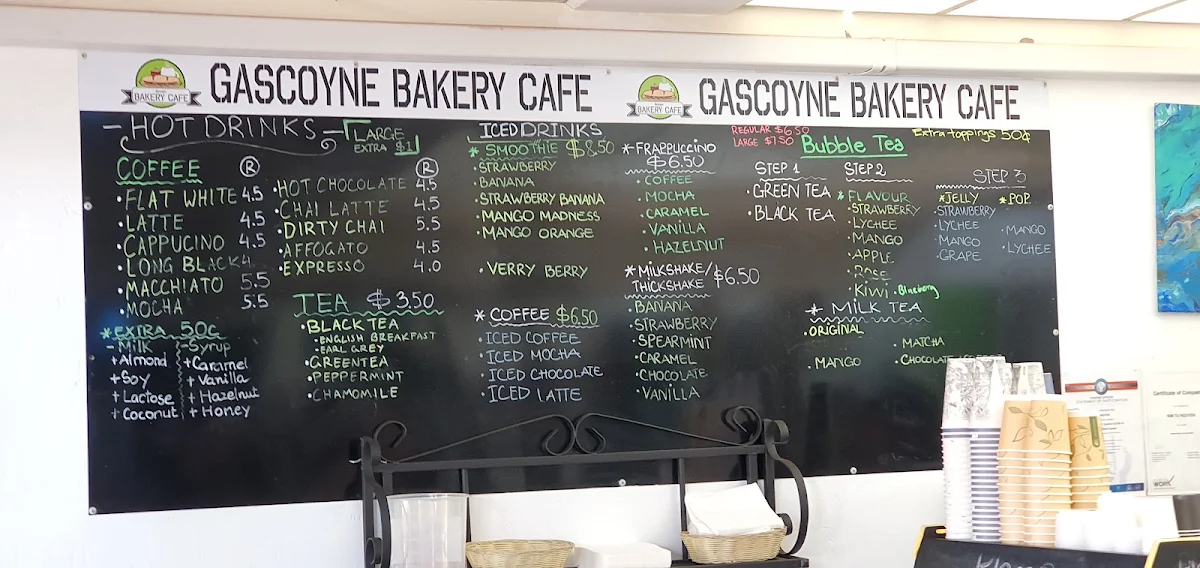 GASCOYNE BAKERY CAFE
BAKERY CAFE
GASCOYNE BAKERY CAFE
BAKERY CAFE
HOT DRINKS
LARGE
EXTRA $1
COFFEE R
FLAT WHITE 4.5
LATTE 4.5
CAPPUCINO 4.5
LONG BLACK 4.
MACCHIATO 5.5
MOCHA 5.5
R
HOT CHOCOLATE 4.5
CHAI LATTE 4.5
DIRTY CHAI 5.5
AFFOGATO 4.5
EXPRESSO 4.0
* EXTRA 50C
- Milk
+ Almond
+ Soy
+ Lactose
+ Coconut
- Syrup
+ Caramel
+ Vanilla
+ Hazelnut
+ Honey
TEA $3.50
BLACK TEA
ENGLISH BREAKFAST
EARL GREY
GREENTEA
PEPPERMINT
CHAMOMILE
ICED DRINKS
* SMOOTHIE $8.50
STRAWBERRY
BANANA
STRAWBERRY BANANA
MANGO MADNESS
MANGO ORANGE
VERRY BERRY
* COFFEE $6.50
ICED COFFEE
ICED MOCHA
ICED CHOCOLATE
ICED LATTE
* FRAPPUCCINO
$6.50
COFFEE
MOCHA
CARAMEL
VANILLA
HAZELNUT
* MILKSHAKE/
THICKSHAKE $6.50
BANANA
STRAWBERRY
SPEARMINT
CARAMEL
CHOCOLATE
VANILLA
REGULAR $6.50
LARGE $7.50
Bubble Tea
Extra toppings 50¢
STEP 1
GREEN TEA
BLACK TEA
STEP 2
* FLAVOUR
STRAWBERRY
LYCHEE
MANGO
APPLE
ROSE
KIWI • Blueberry
STEP 3
* JELLY
STRAWBERRY
LYCHEE
MANGO
GRAPE
* POP
MANGO
LYCHEE
* MILK TEA
ORIGINAL
MANGO
MATCHA
CHOCOLATE